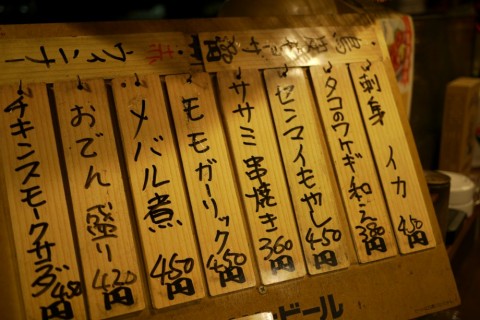 刺身 イカ 450円
タコのワケギ和え 380円
センマイもやし 450円
ササミ串焼き 360円
モモガーリック 450円
メバル煮 450円
おでん盛り 420円
チキンスモークサラダ 480円
ビール